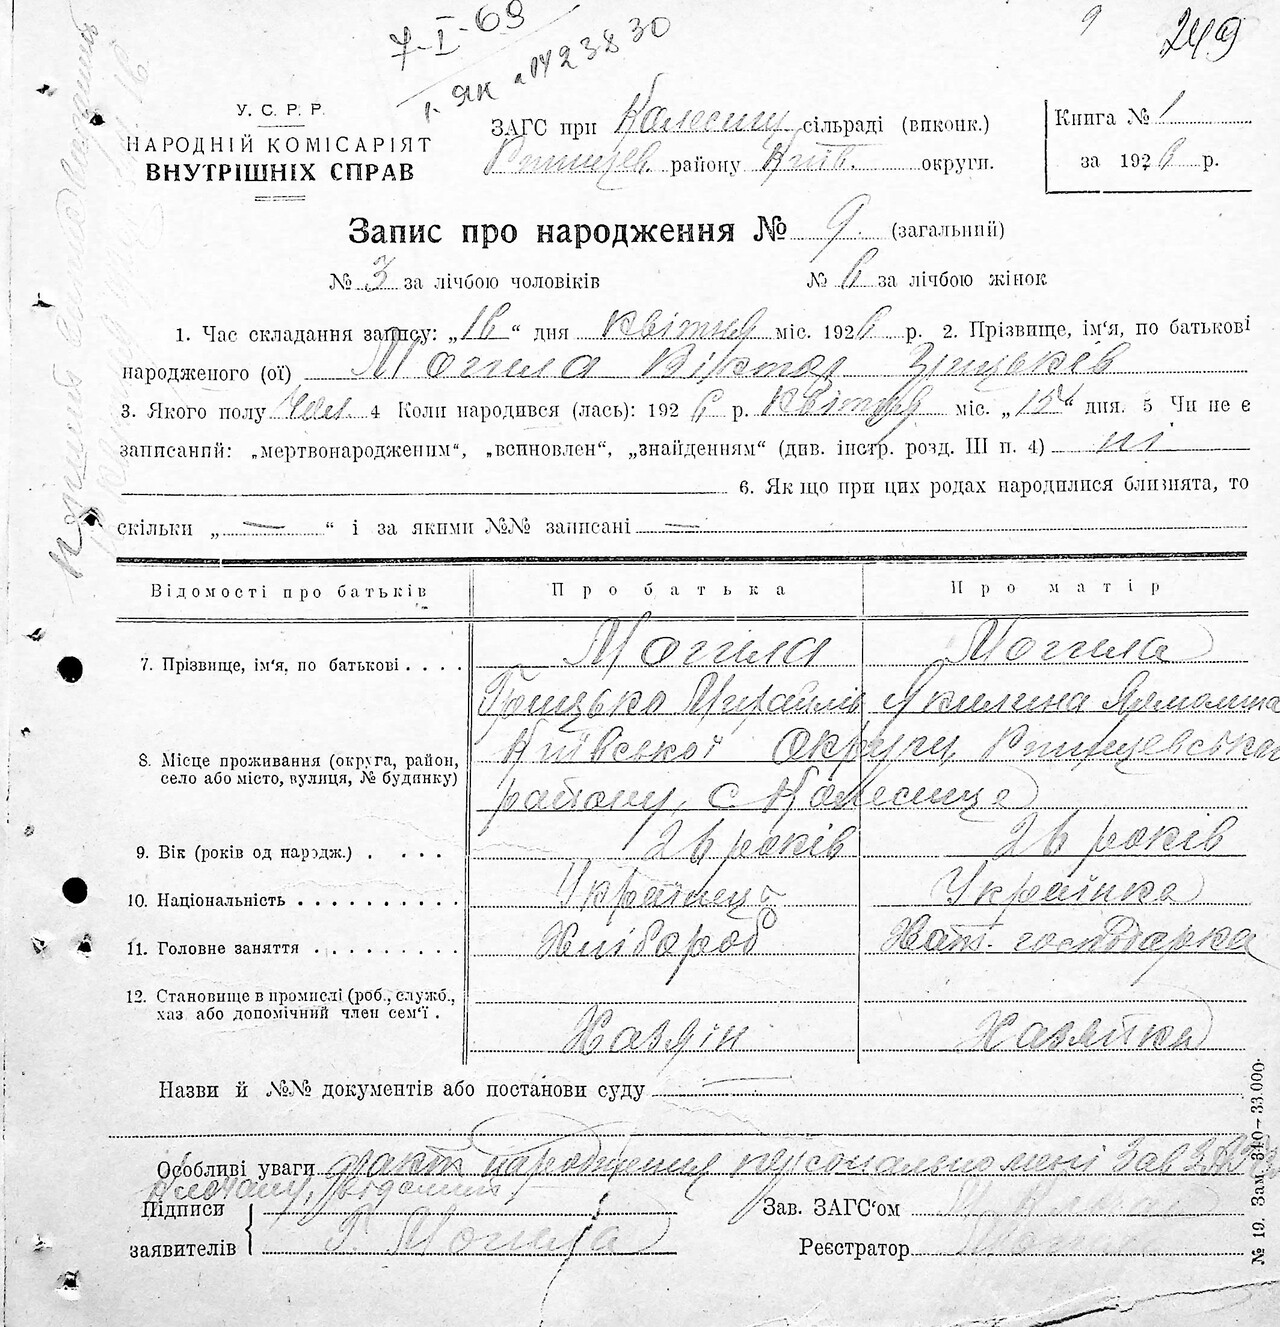 7-I-69
9
249
І. ЯК № 0423830
У. С. Р. Р.
НАРОДНІЙ КОМІСАРІЯТ
ВНУТРІШНІХ СПРАВ
ЗАГС при сільраді (виконк.)
Ржищев. району Київ. округи.
Книга № 1
за 1926 р.
Запис про народження № 9. (загальний)
№ 3 за лічбою чоловіків № 6 за лічбою жінок
1. Час складання запису: „16“ дня квітня міс. 1926 р. 2. Прізвище, ім‘я, по батькові
народженого (ої) Могила Віктор Грицьків
3. Якого полу чол 4 Коли народився (лась): 1926 р. квітня міс. „15“ дня. 5 Чи не є
записаний: „мертвонародженим“, „всиновлен“, „знайденням“ (див. інстр. розд. III п. 4) ні
6. Якщо при цих родах народилися близнята, то
скільки „—“ і за якими №№ записані —
Відомості про батьків Про батька Про матір
7. Прізвище, ім‘я, по батькові . . . . Могила Могила
Грицько Михайлів Якилина
8. Місце проживання (округа, район, Київської округи, Ржищевського
село або місто, вулиця, № будинку) району, с
9. Вік (років од народж.) . . . . 26 років 26 років
10. Національність . . . . . . . . . . Українець Українка
11. Головне заняття . . . . . . . . . Хлібороб Хат. господарка
12. Становище в промислі (роб., служб.,
хаз або допомічний член сем‘ї . Хазяїн Хазяйка
Назви й №№ документів або постанови суду —
Особливі уваги факт народження персонально мені Зав
Підписи Зав. ЗАГС‘ом
заявителів Г. Могила Реєстратор
№ 19. Зам. 340—33.000.